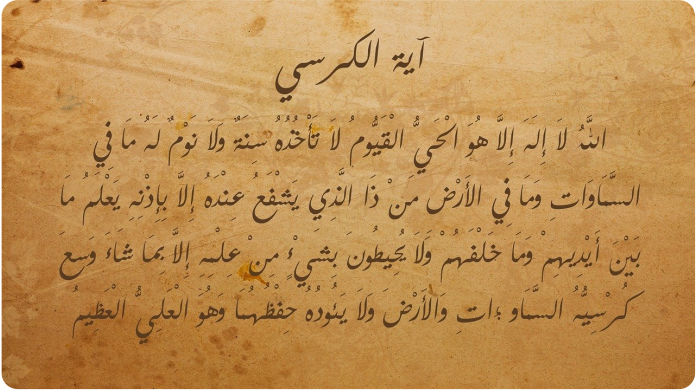 آية الكرسي
اللَّهُ لَا إِلَهَ إِلَّا هُوَ الْحَيُّ الْقَيُّومُ لَا تَأْخُذُهُ سِنَةٌ وَلَا نَوْمٌ لَهُ مَا فِي
السَّمَاوَاتِ وَمَا فِي الأَرْضِ مَنْ ذَا الَّذِي يَشْفَعُ عِنْدَهُ إِلَّا بِإِذْنِهِ يَعْلَمُ مَا
بَيْنَ أَيْدِيهِمْ وَمَا خَلْفَهُمْ وَلَا يُحِيطُونَ بِشَيْءٍ مِنْ عِلْمِهِ إِلَّا بِمَا شَاءَ وَسِعَ
كُرْسِيُّهُ السَّمَاو ؛اتِ وَالأَرْضَ وَلَا يَئُودُهُ حِفْظُهُمَا وَهُوَ الْعَلِيُّ الْعَظِيمُ